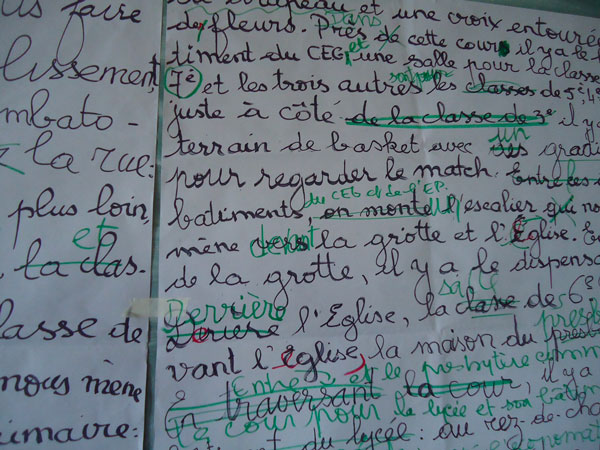 us faire
lissement,
mbato-
la rue:
plus loin,
et
la clas-
lasse de
nous mène
imaire:
drapeau et une croix entouré
de fleurs. Près de cette cour il y a le
dans
timent du CEG, et une salle pour la classe
7è et les trois autres les classes de 5è, 4è
juste à côté de la classe de 3è il y
terrain de basket avec des gradi
un
pour regarder le match. Entre les
du CEG et de l'EP.
batiments, on monte l'escalier qui no
mène vers la grotte et l'Église. E
devant
de la grotte, il y a le dispensa
salle
Derrière
l'Eglise, la classe de 6è
vant l'église, la maison du presb
presb
Entre et le presbytère
En traversant la cour, il y a
la cour pour le lycée et son
du lycée: au rez-de-cha